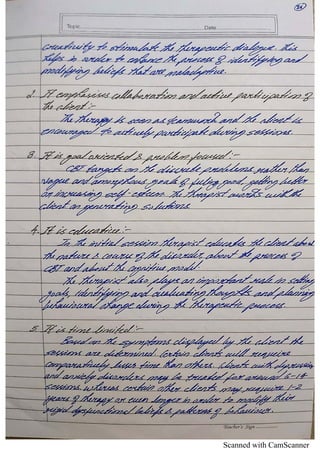 Topic
Date
creativity to stimulate the therapeutic dialogue this
helps in order to enhance the process of identifying and
modifying beliefs that are maladaptive.
2. It emphasises collaboration and active participation of
the client :-
The therapy is seen as teamwork and the client is
encouraged to actively participate during sessions.
3. It is goal oriented & problem focused :-
CBT targets on the discrete problems rather than
vague and amorphous goals of feeling good, getting better
or increasing self-esteem. The therapist works with the
client on generating solutions
4. It is educative :-
In the initial session therapist educates the client about
the nature & course of the disorder, about the process of
CBT and about the cognitive model.
The therapist also plays an important role in setting
goals, identifying and evaluating thoughts and planning
behavioural change during the therapeutic process.
5. It is time limited :-
Based on the symptoms displayed by the client the
sessions are determined. Certain clients will require
comparatively less time than others. Clients with depression
and anxiety disorders may be treated for around 5-14
sessions whereas certain other clients may require 1-2
years of therapy or even longer in order to modify their
rigid dysfunctional beliefs & patterns of behaviour.
Teacher's Sign
Scanned with CamScanner